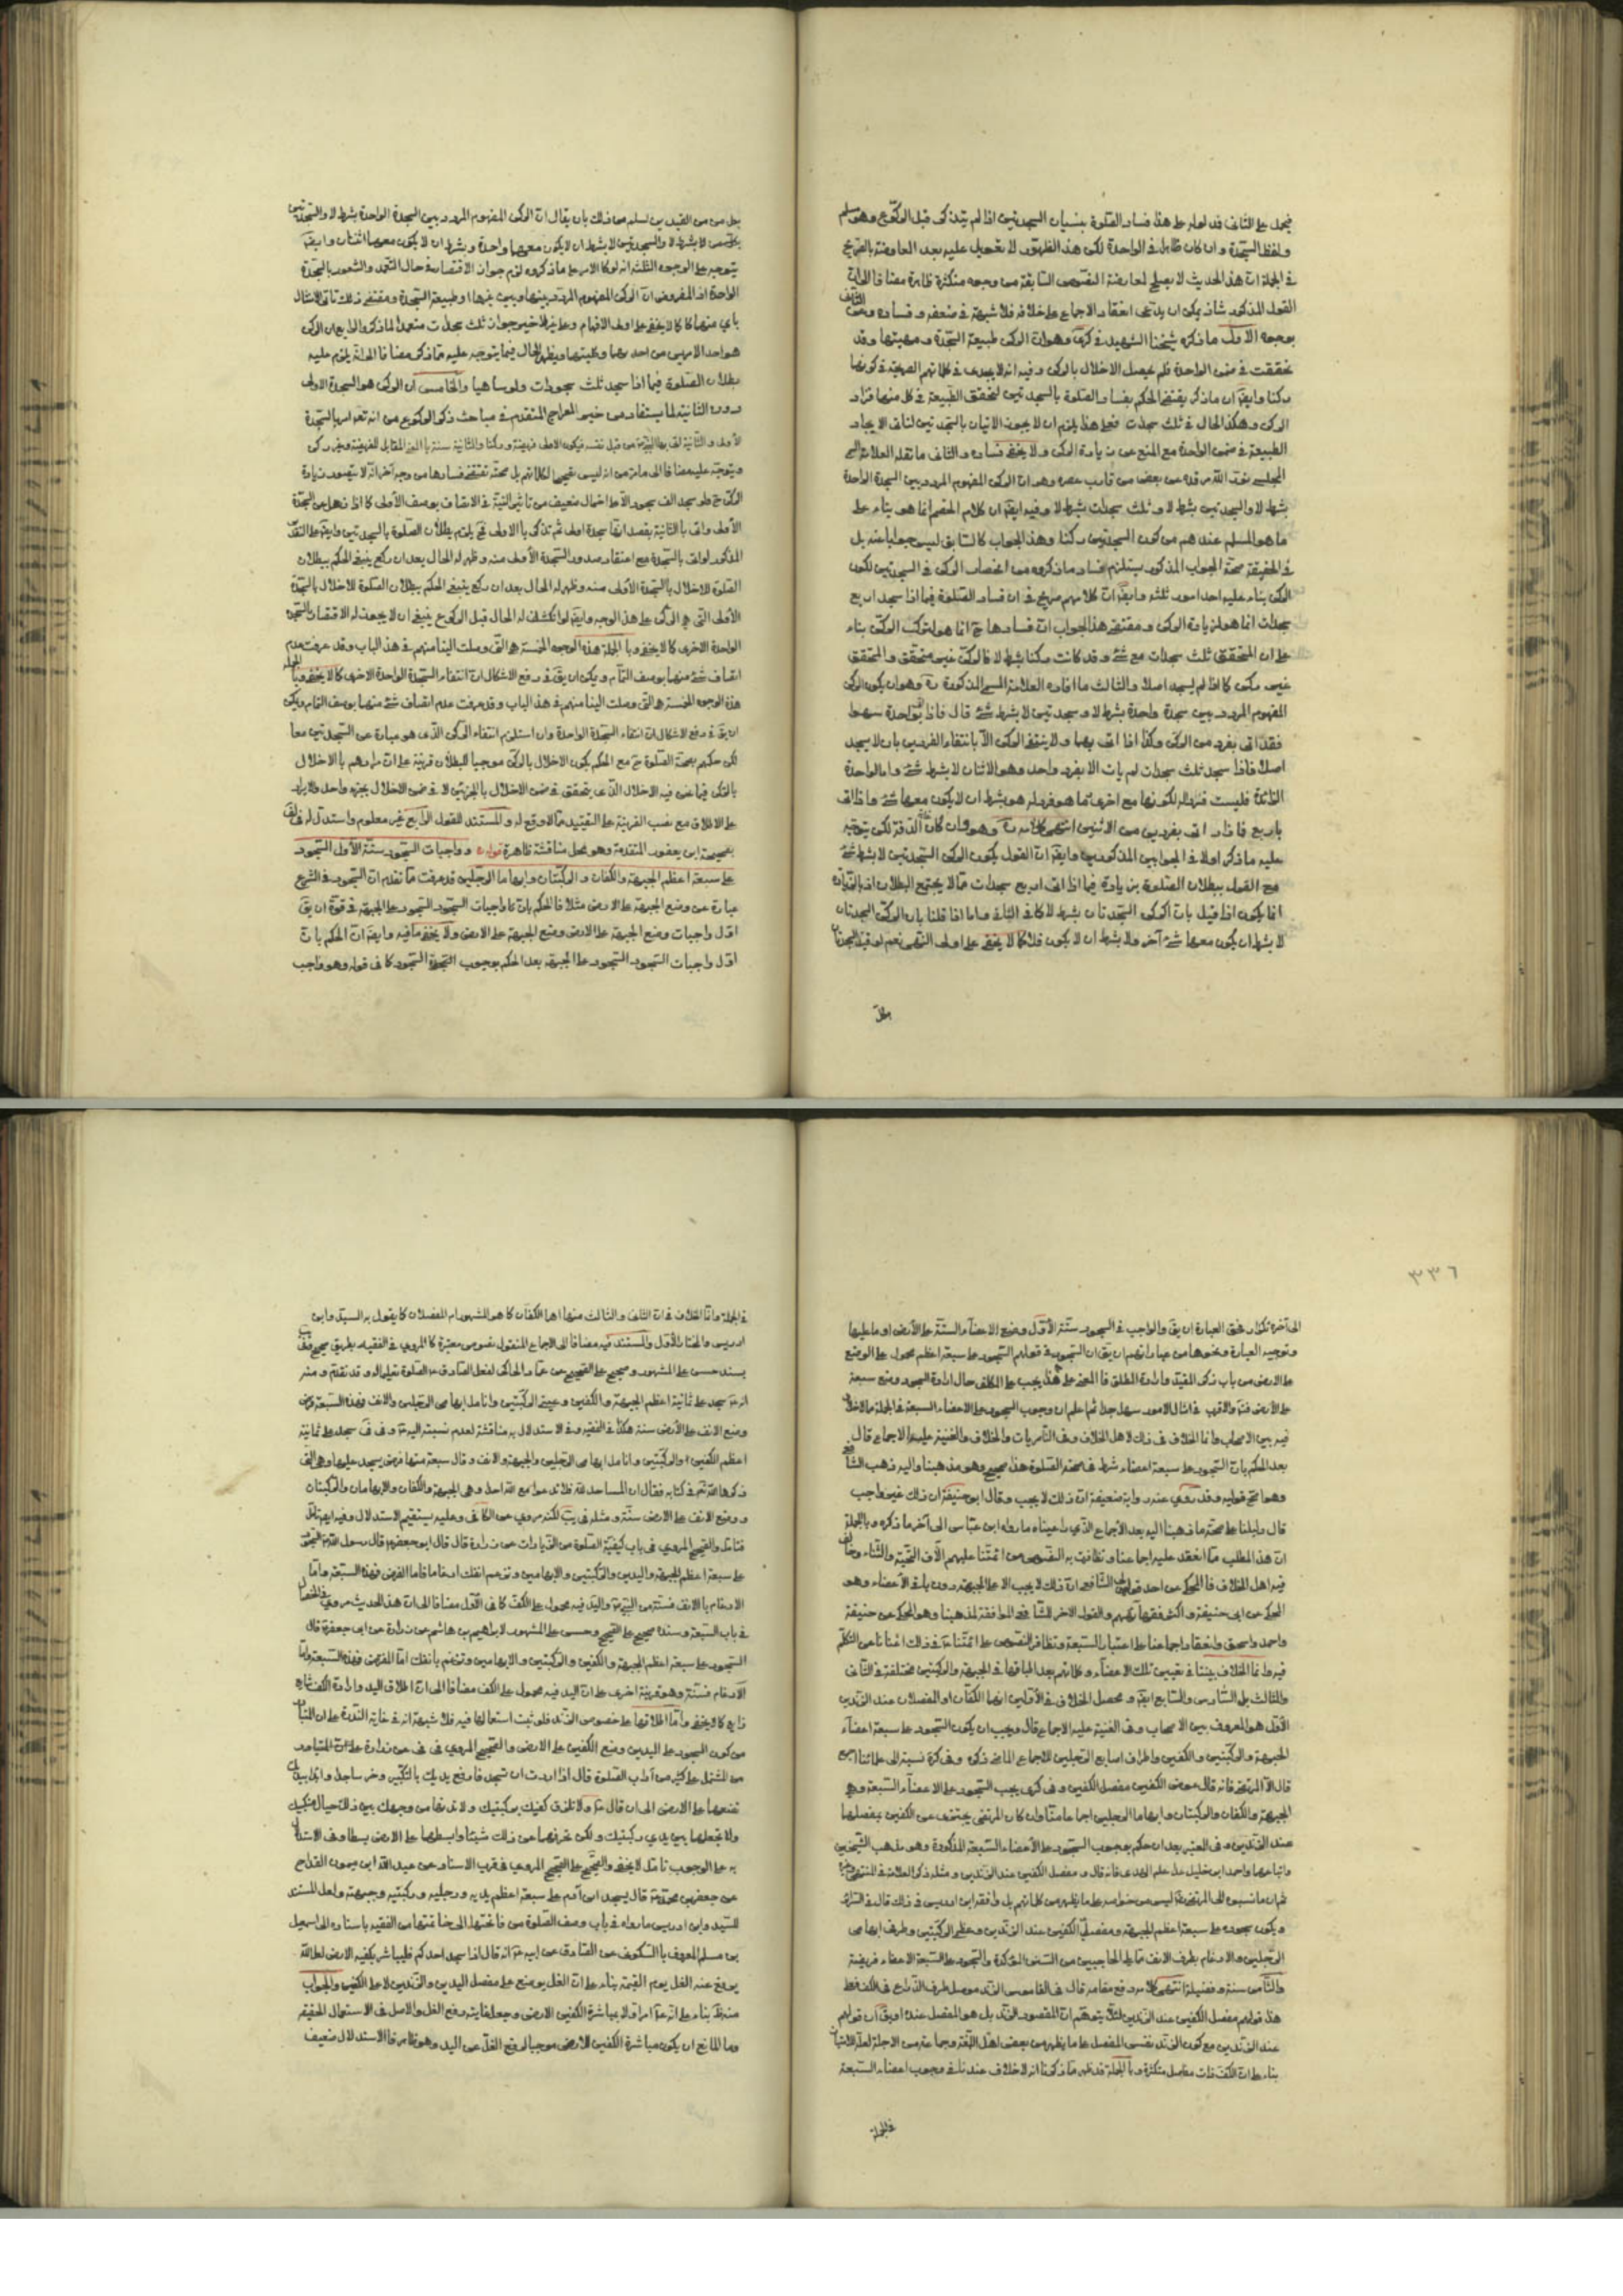 فيحمل على الثاني قد لوله على هذا فساد الصلوة بنسيان السجدتين اذا لم يتذكر قبل الركوع وهو مسلم
ولفظ السجدة وان كان ظاهرا في الواحدة لكن هذا الظهور لا تعويل عليه بعد المعارضة بالصريح
في الجملة ان هذا الحديث لا يصلح لمعارضة النصوص السابقة من وجوه متكثرة ظاهرة مضافا الى ان
القول المذكور شاذ يمكن ان يدعى انعقاد الاجماع على خلافه فلا شبهة في ضعفه وفساده وعن الثاني
بوجوه الاول ما ذكره شيخنا الشهيد في كرى وهو ان الركن طبيعة السجدة ومهيتها وقد
تحققت في ضمن الواحدة فلم يحصل الاخلال بالركن وفيه انه لا يجدى في كلماتهم الصريحة في كونهما
ركنا وايضا ان ما ذكر يقتضي الحكم بفساد الصلوة بالسجدتين لتحقق الطبيعة في كل منهما فزاد
الركن وهكذا الحال في ثلث سجدات فعلى هذا يلزم ان لا يجوز الاتيان بالسجدتين لتنافي الايجاد
الطبيعة في ضمن الواحدة مع المنع عن زيادة الركن ولا يخفى فساده والثاني ما نقله العلامة
المجلسي نور الله مرقده عن بعض من قارب عصره وهو ان الركن المفهوم المردد بين السجدة الواحدة
بشرط لا والسجدتين بشرط لا وثلث سجدات بشرط لا وفيه ايضا ان كلام الخصم انما هو بناء على
ما هو المسلم عندهم من كون السجدتين ركنا وهذا الجواب كالسابق ليس جوابا عنه بل
في الحقيقة صحة الجواب المذكور يستلزم فساد ما ذكروه من انحصار الركن في السجدتين لكون
الركن بناء عليه احد امور ثلثة وايضا ان كلامهم صريح في ان فساد الصلوة فيما اذا سجد اربع
سجدات انما هو لزيادة الركن ومقتضى هذا الجواب ان فسادها ح انما هو لترك الركن بناء
على ان المتحقق ثلث سجدات مع شئ وقد كانت ركنا بشرط لا فالركن غير متحقق والمتحقق
غير ركن كما اذا لم يسجد اصلا والثالث ما افاده العلامة المذكورة وهو ان يكون الركن
المفهوم المردد بين سجدة واحدة بشرط لا وسجدتين لا بشرط شئ قال فاذا اتى بواحدة سهوا
فقد اتى بفرد من الركن وكذا اذا اتى بهما ولا ينتفي الركن الا بانتفاء الفردين بان لا يسجد
اصلا فاذا سجد ثلث سجدات لم يات الا بفرد واحد وهو الاثنان لا بشرط شئ واما الواحدة
الزائدة فليست فردا له لكونها مع اخرى فما هو فرد له هو بشرط ان لا يكون معها شئ واذا اتى
باربع فما زاد اتى بفردين من الاثنين انتهى كلامه وهو وان كان الدقة لكن يتوجه
عليه ما ذكر اولا في الجوابين المذكورين وايضا ان القول بكون الركن السجدتين لا بشرط شئ
مع القول ببطلان الصلوة بزيادة فيما اذا اتى اربع سجدات مما لا يجتمع البطلان
انما يكون اذا قيل بان الركن السجدتان بشرط لا كما في الثاني واما اذا قلنا بان الركن السجدتان
لا بشرط ان يكون معهما شئ آخر ولا بشرط ان لا يكون فلا كما لا يخفى على اولى النهى نعم لو قيل
بجعل
بجعل من القيدين لسلم من ذلك بان يقال ان الركن المفهوم المردد بين السجدة الواحدة بشرط لا والسجدتين
لا بشرط لا والسجدتين لا بشرط ان لا يكون معهما واحدة وبشرط ان لا يكون معهما اثنتان وايضا
يتوجه على الوجوه الثلثة انه لو كان الامر على ما ذكروه لزم جواز الاقتصار في حال التعمد والشعور بالسجدة
الواحدة اذ المفروض ان الركن المفهوم المردد بينها وبين غيرها او طبيعة السجدة ومقتضى ذلك تأتي الامتثال
باي منهما كما لا يخفى على اولى الافهام وعلى الاخير جواز ثلث سجدات متعمدا لما ذكر والرابع ان الركن
هو احد الامرين من احدهما وكليتهما ويظهر الحال فيما يتوجه عليه مما ذكر مضافا الى انه يلزم عليه
بطلان الصلوة فيما اذا سجد ثلث سجودات ولو ساهيا والخامس ان الركن هو السجدة الاولى
دون الثانية لما يستفاد من خبر المعراج المتقدم في مباحث ذكر الركوع من انه تعالى امر بالسجدة
الاولى والثانية اتى بها النبي من قبل نفسه فيكون الاولى فريضة وركنا والثانية سنة بالمعنى المقابل للفريضة وغير ركن
ويتوجه عليه مضافا الى ما مر من انه ليس تصحيحا لكلامهم بل صحته تقتضي فسادها من وجه آخر انه لا يتصور زيادة
الركن ح ولو سجد الف سجود الا على احتمال ضعيف من تأثير النية في الاتصاف بوصف الاولى كما اذا ذهل عن السجدة
الاولى واتى بالثانية بقصد انها سجدة اولى ثم تذكر بالاولى فح يلزم بطلان الصلوة بالسجدتين وايضا على التقدير
المذكور لو اتى بالسجدة مع اعتقاد صدور السجدة الاولى منه وظهر له الحال بعد ان ركع ينبغي الحكم ببطلان
الصلوة للاخلال بالسجدة الاولى منه وظهر له الحال بعد ان ركع ينبغي الحكم ببطلان الصلوة للاخلال بالسجدة
الاولى التي هي الركن على هذا الوجه وايضا لو انكشف له الحال قبل الركوع ينبغي ان لا يجوز له الاقتصار بالسجدة
الواحدة الاخرى كما لا يخفى وبالجملة هذه الوجوه الخمسة هي التي وصلت الينا منهم في هذا الباب وقد عرفت عدم
اتصاف شئ منها بوصف التمام ويمكن ان يق في رفع الاشكال ان انتفاء السجدة الواحدة الاخرى كما لا يخفى وبالجملة
هذه الوجوه الخمسة هي التي وصلت الينا منهم في هذا الباب وقد عرفت عدم اتصاف شئ منها بوصف التمام ويمكن
ان يق في رفع الاشكال ان انتفاء السجدة الواحدة وان استلزم انتفاء الركن الذي هو عبارة عن السجدتين معا
لكن حكمهم بصحة الصلوة ح مع الحكم بكون الاخلال بالركن موجبا للبطلان قرينة على ان مرادهم بالاخلال
بالركن فيما نحن فيه الاخلال الذي يتحقق في ضمن الاخلال بالجزئين لا في ضمن الاخلال بجزء واحد والايراد
على الاطلاق مع نصب القرينة على التقييد مما لا وقع له والمستند للقول الرابع غير معلوم واستدل له في لف
بصحيحة ابن يعفور المتقدمة وهو محل مناقشة ظاهرة قوله وواجبات السجود ستة الاول السجود
على سبعة اعظم الجبهة والكفان والركبتان وابهاما الرجلين قد عرفت مما تقدم ان السجود في الشرع
عبارة عن وضع الجبهة على الارض مثلا فالحكم بان من واجبات السجود السجود على الجبهة في قوة ان يق
اول واجبات وضع الجبهة على الارض وضع الجبهة على الارض ولا يخفى ما فيه وايضا ان الحكم بان
اول واجبات السجود السجود على الجبهة بعد الحكم بوجوب السجدة السجود كما في قوله وهو واجب
٣٣٦
الى آخره تكرار فحق العبارة ان يق والواجب في السجود ستة الاول وضع الاعضاء الستة على الارض او ما عليها
وتوجيه العبارة ونحوها من عباراتهم ان يق ان السجود في قولهم السجود على سبعة اعظم محمول على الوضع
على الارض من باب ذكر المقيد وارادة المطلق فالمعنى على هذا يجب على المكلف حال ارادة السجود وضع سبعة
على الارض والامر في امثال الامور سهل جدا ثم اعلم ان وجوب السجود على الاعضاء السبعة في الجملة مما لا خلاف
فيه بين الاصحاب وانما الخلاف في ذلك لاهل الخلاف وفي الناصريات والخلاف والغنية عليه الاجماع قال
بعد الحكم بان السجود على سبعة اعضاء شرط في صحة الصلوة هذا صحيح وهو مذهبنا واليه ذهب الشافعي
وهو اصح قوليه وقد روي عنه رواية ضعيفة ان ذلك لا يجب وقال ابو حنيفة ان ذلك غير واجب
قال دليلنا على صحة ما ذهبنا اليه بعد الاجماع الذي راعيناه ما رواه ابن عباس الى آخر ما ذكره وبالجملة
ان هذا المطلب مما انعقد عليه اجماعنا وتظافرت به النصوص من ائمتنا عليهم الاف التحية والثناء وخالف
فيه اهل الخلاف فالمحكي عن احد قولي الشافعي ان ذلك لا يجب الا على الجبهة دون باقي الاعضاء وهو
المحكي عن ابي حنيفة واكثر فقهائهم والقول الاخر للشافعي الموافقة لمذهبنا وهو المحكي عن حنيفة
واحمد واسحق وانعقاد اجماعنا على اعتبار السبعة وتظافر النصوص على ائمتنا في ذلك اغنانا عن التكلم
فيه وانما الخلاف بيننا في تعيين تلك الاعضاء وكلماتهم بعد اطباقها في الجبهة والركبتين مختلفة في الثاني
والثالث بل السادس والسابع ايضا ومحصل الخلاف في الاولين انهما الكفان او المفصلان عند الزندين
الاول هو المعروف بين الاصحاب وفي الغنية عليه الاجماع قال ويجب ان يكون السجود على سبعة اعضاء
الجبهة والركبتين والكفين واطراف اصابع الرجلين للاجماع الماضي ذكره وفي كره نسبه الى علمائنا اجمع
قال الا المرتضى فانه قال عوض الكفين مفصل الكفين وفي كرى يجب السجود على الاعضاء السبعة وهي
الجبهة والكفان والركبتان وابهاما الرجلين اجماعا منا وان كان المرتضى يجتزي عن الكفين بمفصلهما
عند الزندين وفي المعتبر بعد ان حكم بوجوب السجود على الاعضاء السبعة المذكورة وهو مذهب الشيخين
واتباعهما واحمد ابن حنبل عدا علم الهدى فانه قال ومفصل الكفين عند الزندين ومثله ذكر العلامة في المنتهى
ثم ان ما نسبوه الى المرتضى ليس من خواصه على ما يظهر من كلماتهم بل وافقه ابن ادريس في ذلك قال في السرائر
ويكون سجوده على سبعة اعظم الجبهة ومفصلي الكفين عند الزندين وعظمي الركبتين وطرف ابهامي
الرجلين والارغام بطرف الانف مما يلي الحاجبين من السنن المؤكدة والسجود على السبعة الاعضاء فريضة
والثامن سنة وفضيلة انتهى كلامه رفع مقامه قال في القاموس الزند موصل طرف الذراع في الكف
هذا قولهم مفصل الكفين عند الزندين لئلا يتوهم ان المقصود الزند بل هو المفصل عنده او يق ان قولهم
عند الزندين مع كون الزند نفس المفصل على ما يظهر من بعض اهل اللغة وجماعة من الاجلة لعله للاشباع
بناء على ان الكف ذات مفاصل متكثرة وبالجملة قد ظهر مما ذكرنا انه لا خلاف عندنا في وجوب اعضاء السبعة
في الجملة
في الجملة وانما الخلاف في ان الثاني والثالث منها اهما الكفان كما هو المشهور ام المفصلان كما يقول به السيد وابن
ادريس والمختار الاول والمستند فيه مضافا الى الاجماع المنقول نصوص معتبرة كالمروي في الفقيه بطريق صحيح وفي
بسند حسن على المشهور وصحيح على الصحيح عن حماد الحاكي لفعل الصادق الصلوة تعليما له وقد تقدم ومنه
انه سجد على ثمانية اعظم الجبهة والكفين وعيني الركبتين وانامل ابهامي الرجلين والانف فهذه السبعة فرض
ووضع الانف على الارض سنة هكذا في الفقيه وفي الاستدلال به مناقشة لعدم نسبته اليه وفي في سجد على ثمانية
اعظم الكفين والركبتين وانامل ابهامي الرجلين والجبهة والانف وقال سبعة منها فرض يسجد عليها وهي التي
ذكرها الله في كتابه فقال ان المساجد لله فلا تدعوا مع الله احدا وهي الجبهة والكفان والابهامان والركبتان
ووضع الانف على الارض سنة ومثله في يب لكنه مروي عن الكافي وعليه يستقيم الاستدلال وفيه ايضا تأمل
فتأمل والصحيح المروي في باب كيفية الصلوة من الزيادات عن زرارة قال قال ابو جعفر قال رسول الله السجود
على سبعة اعظم الجبهة واليدين والركبتين والابهامين وترغم انفك ارغاما فاما الفرض فهذه السبعة واما
الارغام بالانف فسنة من النبي واليد فيه محمول على الكف كما في الاول مضافا الى ان هذا الحديث مروي في الخصال
في باب السبعة وسنده صحيح على الصحيح وحسن على المشهور لابراهيم بن هاشم عن زرارة عن ابي جعفر قال
السجود على سبعة اعظم الجبهة والكفين والركبتين والابهامين وترغم بانفك اما الفرض فهذه السبعة واما
الارغام فسنة وهو قرينة اخرى على ان اليد فيه محمول على الكف مضافا الى ان اطلاق اليد وارادة الكف شائع
ذايع كما لا يخفى واما اطلاقها على خصوص الزند فلو ثبت استعمالها فيه فلا شبهة انه في غاية الندرة على ان المتبادر
من كون السجود على اليدين وضع الكفين على الارض والصحيح المروي في في عن زرارة على ان المتبادر
من المشتمل على كثير من آداب الصلوة قال اذا اردت ان تسجد فارفع يديك بالتكبير وخر ساجدا وابدأ بيديك
تضعهما على الارض الى ان قال ولا تلزق كفيك بركبتيك ولا تدنهما من وجهك بين ذلك حيال منكبيك
ولا تجعلهما بين يدي ركبتيك ولكن تحرفهما عن ذلك شيئا وابسطهما على الارض بسطا وفي الاستدلال
به على الوجوب تأمل لا يخفى والصحيح على الصحيح المروي في قرب الاسناد عن عبد الله ابن ميمون القداح
عن جعفر بن محمد قال يسجد ابن آدم على سبعة اعظم يديه ورجليه وركبتيه وجبهته ولعل المستند
للسيد وابن ادريس ما رواه في باب وصف الصلوة من فاتحتها الى خاتمتها من الفقيه باسناده الى اسمعيل
بن مسلم المعروف بالسكوني عن الصادق عن ابيه انه قال اذا سجد احدكم فليباشر بكفيه الارض لعل الله
يدفع عنه الغل يوم القيمة بناء على ان الغل يوضع على مفصل اليدين والزندين لا على الكفين والجواب
منه بناء على انه امر اولا بمباشرة الكفين الارض وجعل غايته رفع الغل والاصل في الاستعمال الحقيقة
وما المانع ان يكون مباشرة الكفين للارض موجبا لرفع الغل عن اليد وهو ظاهر فالاستدلال ضعيف